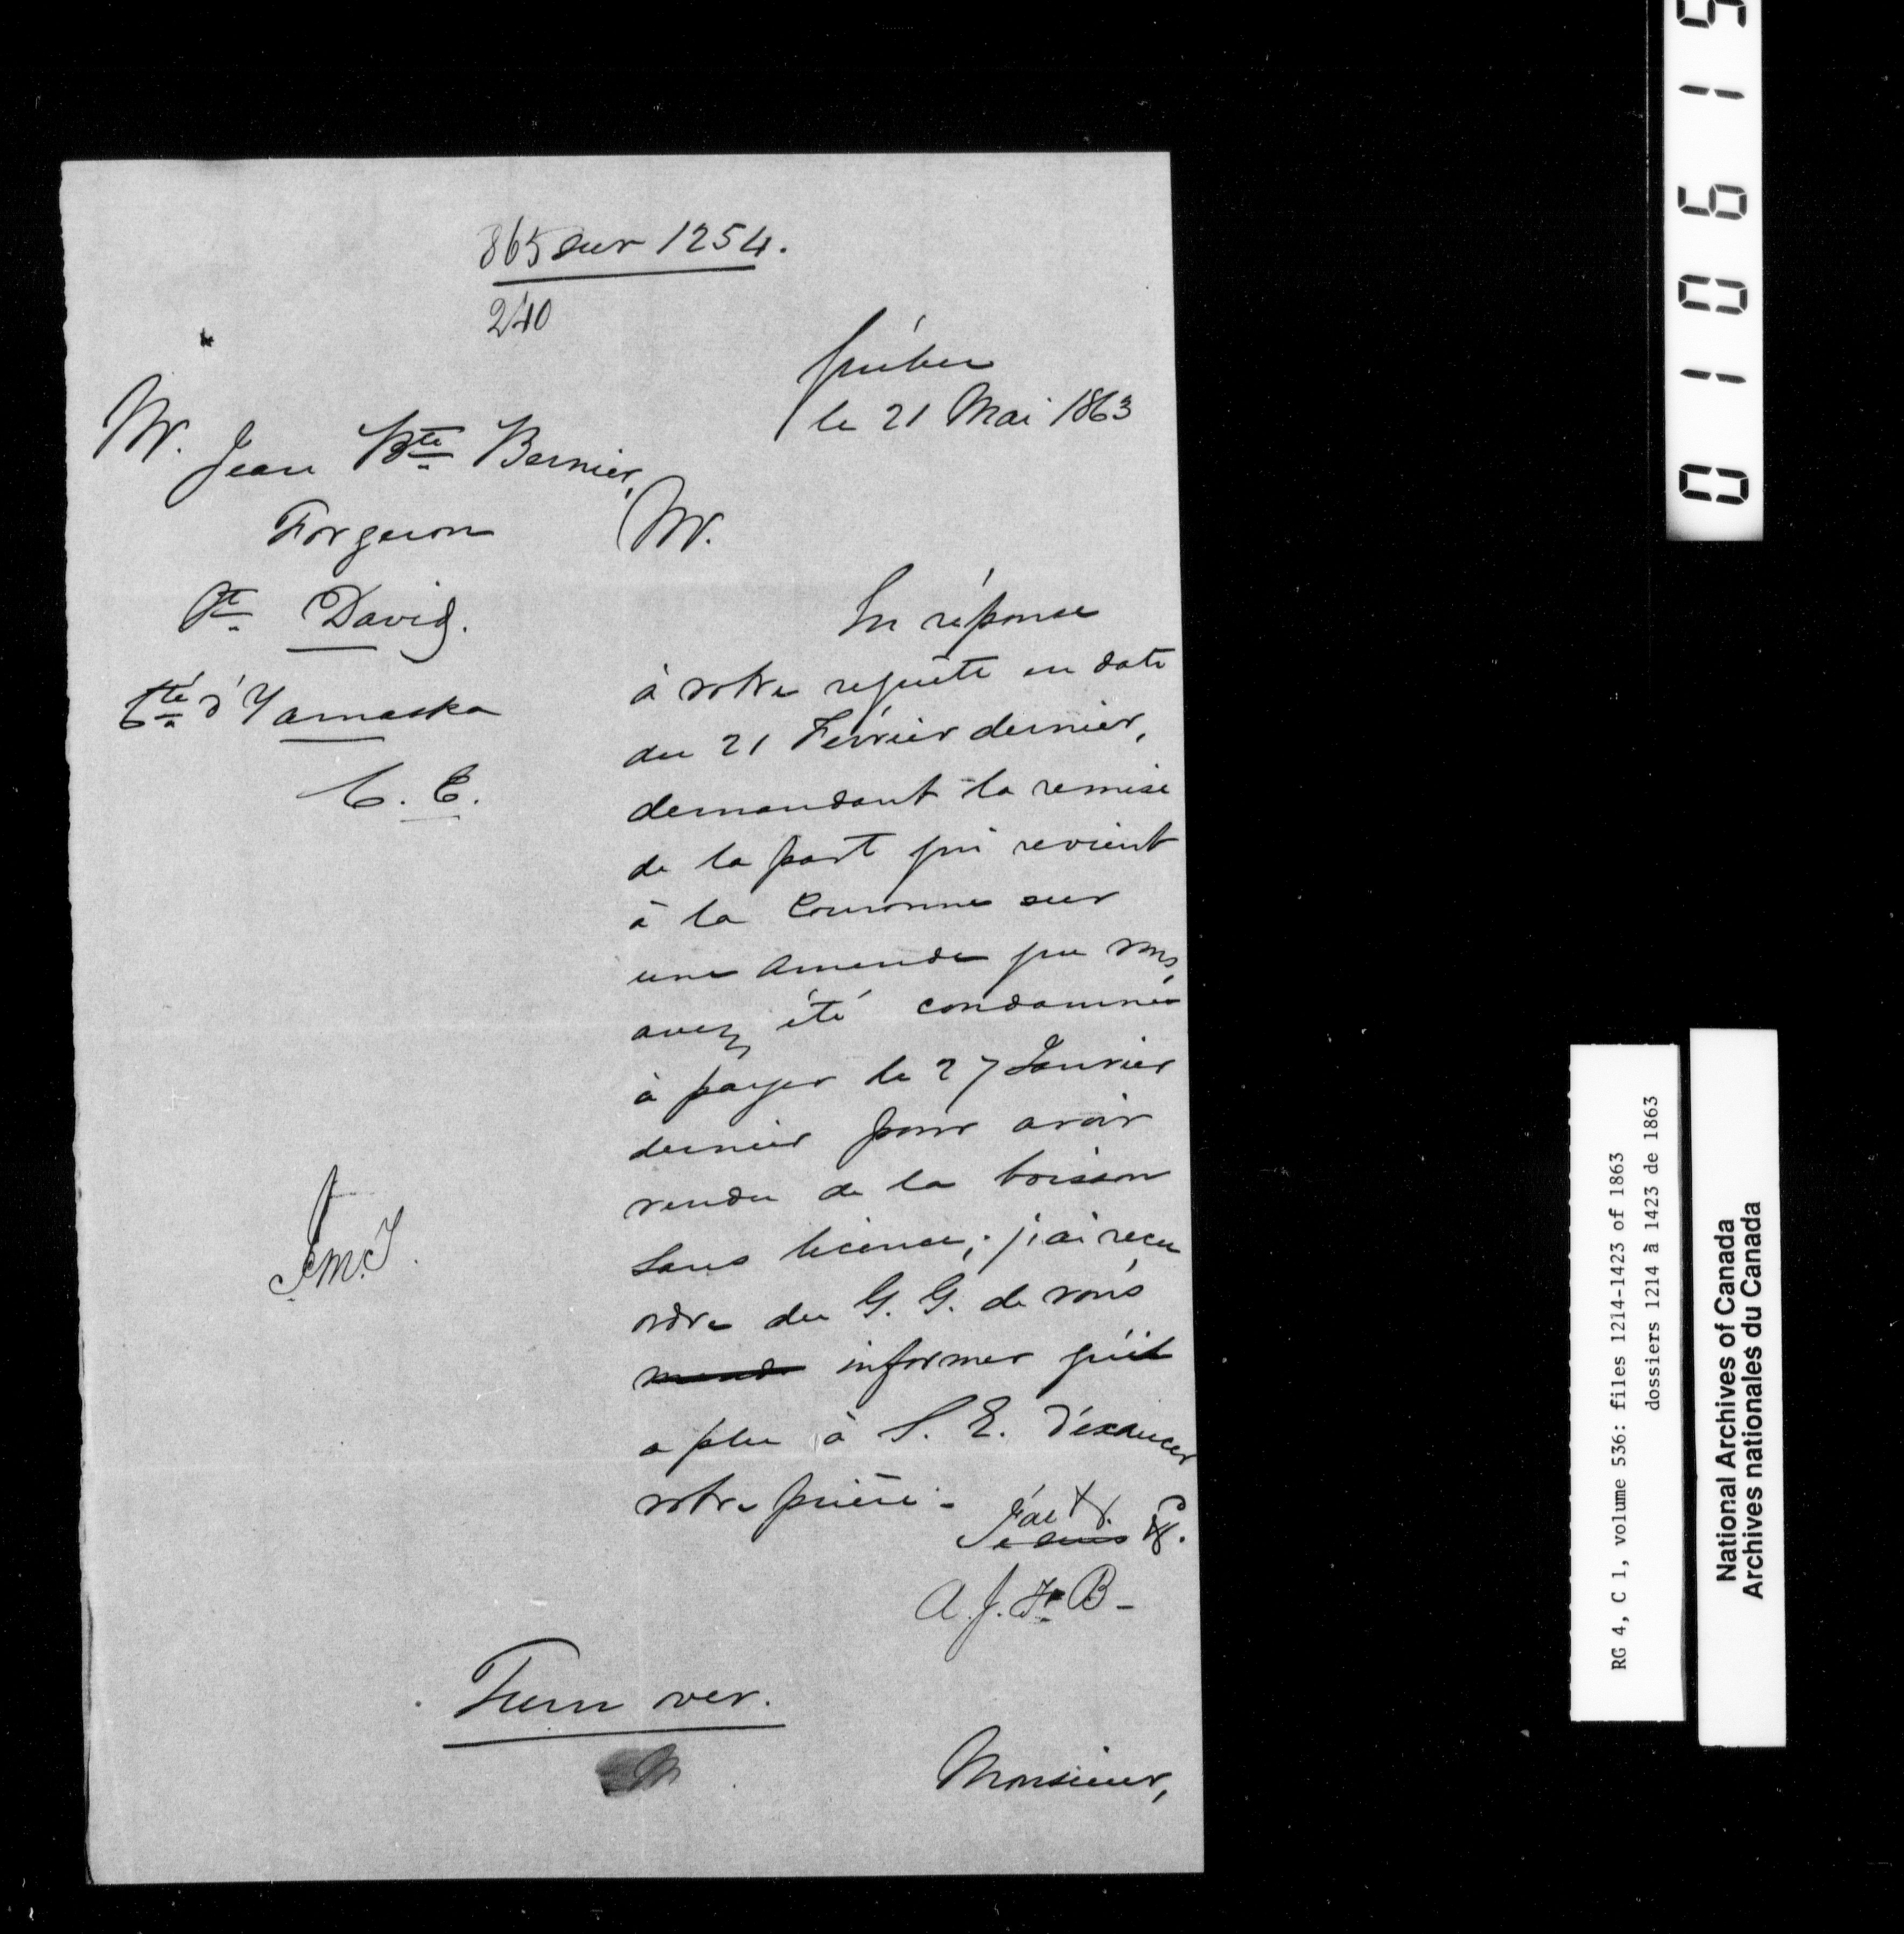 865 sur 1254.
240
Québec
le 21 Mai 1863
M. Jean Bte Bernier,
Forgeron
St David.
Cté d'Yamaska
C. E.
M.
En réponse
à votre requête en date
du 21 Février dernier,
demandant la remise
de la part qui revient
à la Couronne sur
une amende que vous
avez été condamné
à payer le 27 Janvier
dernier pour avoir
vendu de la boisson
sans licence; j'ai reçu
ordre du G. G. de vous
informer qu'il
a plu à S. E. d'exaucer
votre prière.
A. J. F. B-
Turn over.
Monsieur,
010615
RG 4, C 1, volume 536: files 1214-1423 of 1863
dossiers 1214 à 1423 de 1863
National Archives of Canada
Archives nationales du Canada